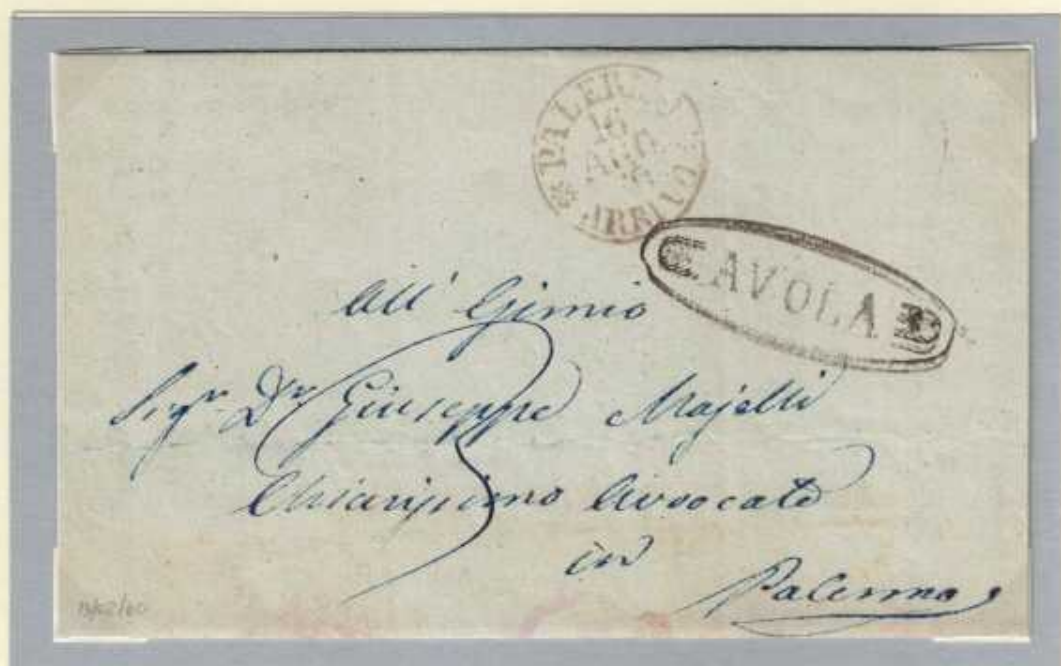 PALERMO
16
AGO
ARRIVO
AVOLA
All' Egimio
Sigr Dn Giuseppe Majelli
Chiarissimo Avvocato
in
Palermo